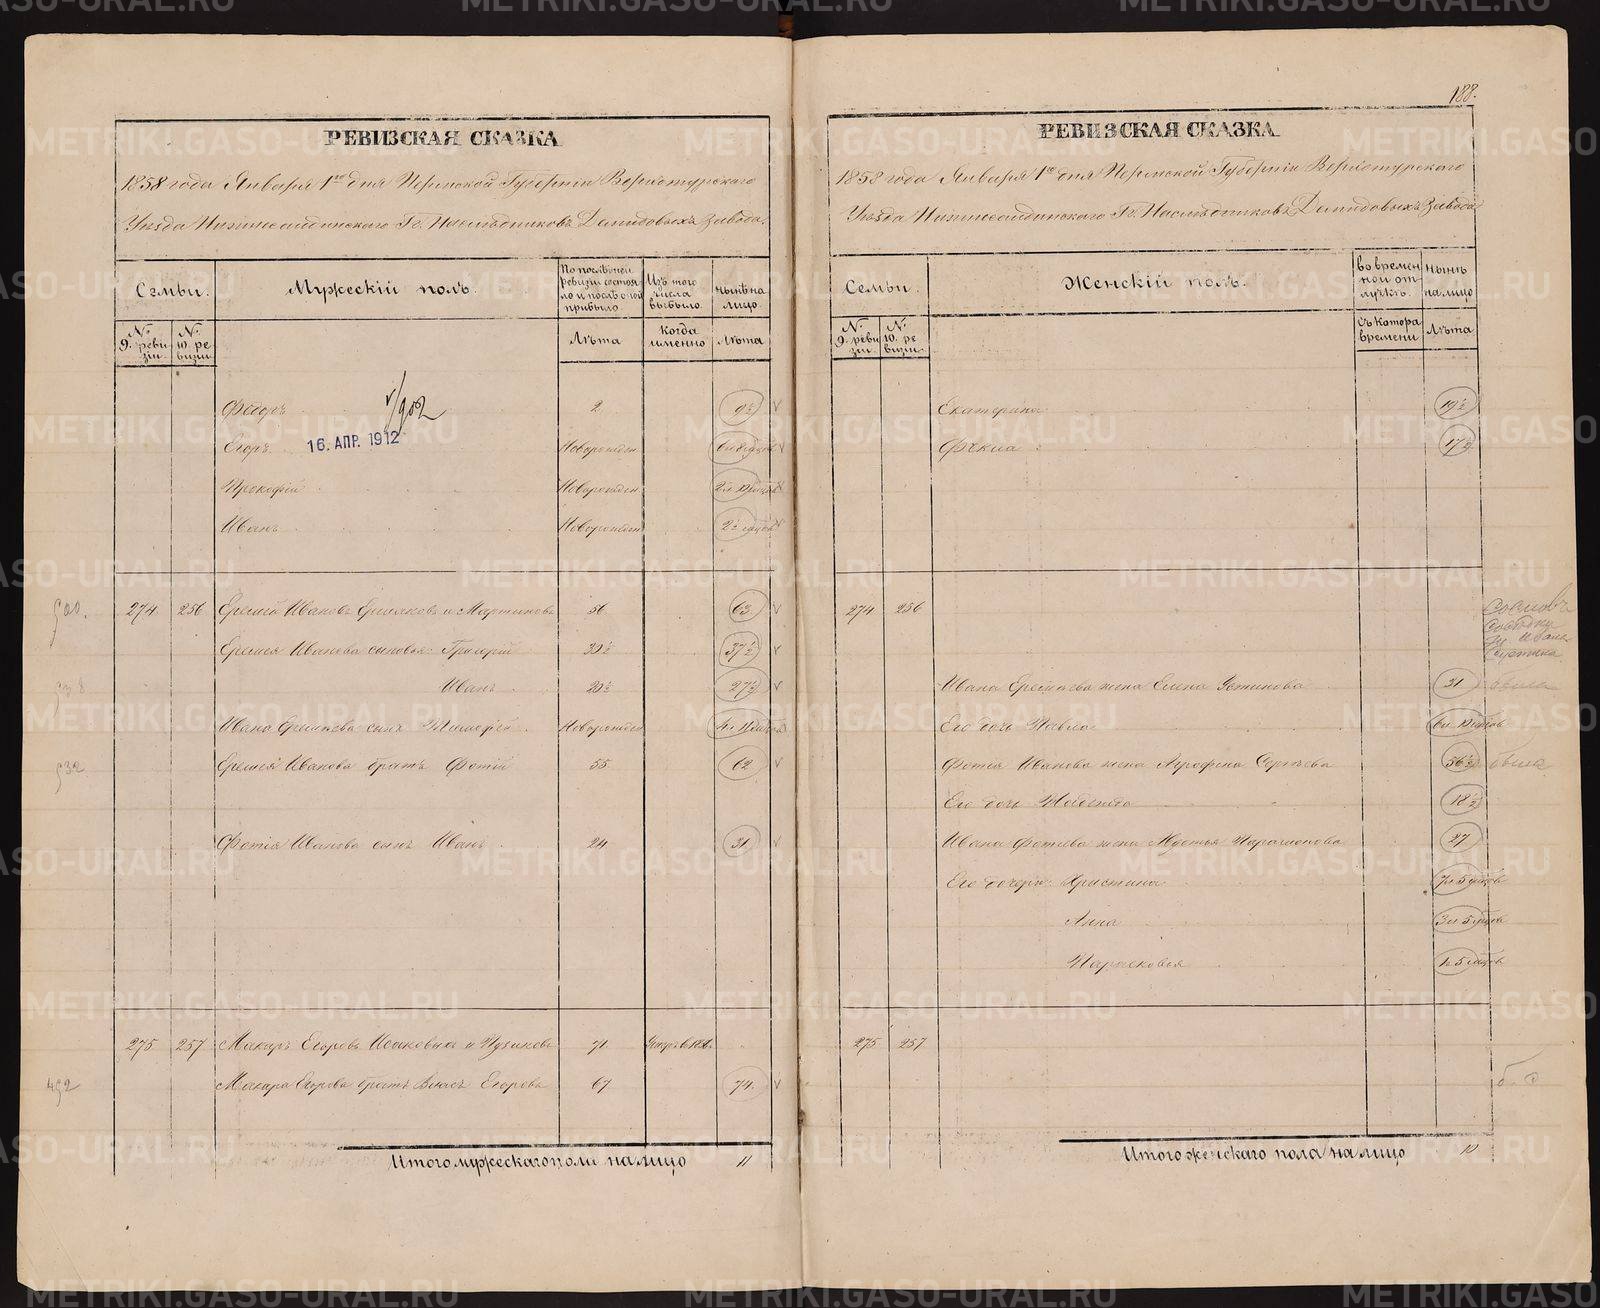 188.
РЕВИЗСКАЯ СКАЗКА
1858 года Января 1го дня Пермской Губерніи Верхотурскаго
Уѣзда Нижнесалдинскаго Гг. Наслѣдниковъ Демидовыхъ Завода.
Семьи. Мужескій полъ. По послѣдней ревизіи состояло и послѣ оной прибыло Изъ того числа выбыло нынѣ на лицо
№ 9. ревизіи № 10. ревизіи Лѣта когда именно Лѣта
Ѳедоръ 2 9½
1/902
Егоръ 16. АПР. 1912 Новорожден
Прокофій Новорожден
Иванъ Новорожден
500. 274 256 Еремей Ивановъ Ермаковъ и Мартыновъ 56 63
Еремея Иванова сыновья: Григорій 30½ 37½
Иванъ 20½ 27½
Ивана Еремѣева сынъ Тимофей Новорожден
532 Еремея Иванова братъ Фотій 55 62
Фотія Иванова сынъ Иванъ 24 31
275 257 Макаръ Егоровъ 71
492 Макара Егорова братъ Власъ Егоровъ 67 74.
Итого мужескаго пола на лицо 11
РЕВИЗСКАЯ СКАЗКА
1858 года Января 1го дня Пермской Губерніи Верхотурскаго
Уѣзда Нижнесалдинскаго Гг. Наслѣдниковъ Демидовыхъ Завода
Семьи. Женскій полъ. во временной отлучкѣ. нынѣ на лицо
№ 9. ревизіи № 10. ревизіи съ котора времени Лѣта
Екатерина 19½
Ѳёкла 17½
274 256
Ивана Еремѣева жена Елена Устинова 31
Его дочь Павла
Фотія Иванова жена Агрофена Сергѣева 56½
Его дочь Надежда 18½
Ивана Фотѣева жена 27
Его дочери: Христина 7л 5 мѣсяцовъ
Анна 3л 5 мѣсяцовъ
Парасковья
275 257
Итого женскаго пола на лицо 10
METRIKI.GASO-URAL.RU